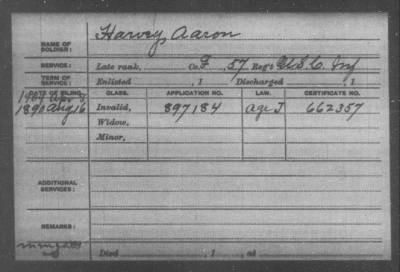 Harvey, Aaron
NAME OF SOLDIER:
SERVICE: Late rank, Co. F, 57 Reg't U.S.C. Inf
TERM OF SERVICE: Enlisted , 1 Discharged , 1
DATE OF FILING. CLASS. APPLICATION NO. LAW. CERTIFICATE NO.
Apr 8
1890 Aug 16 Invalid, 897184 Age J 662357
Widow,
Minor,
ADDITIONAL SERVICES:
REMARKS:
Died , 1 , at